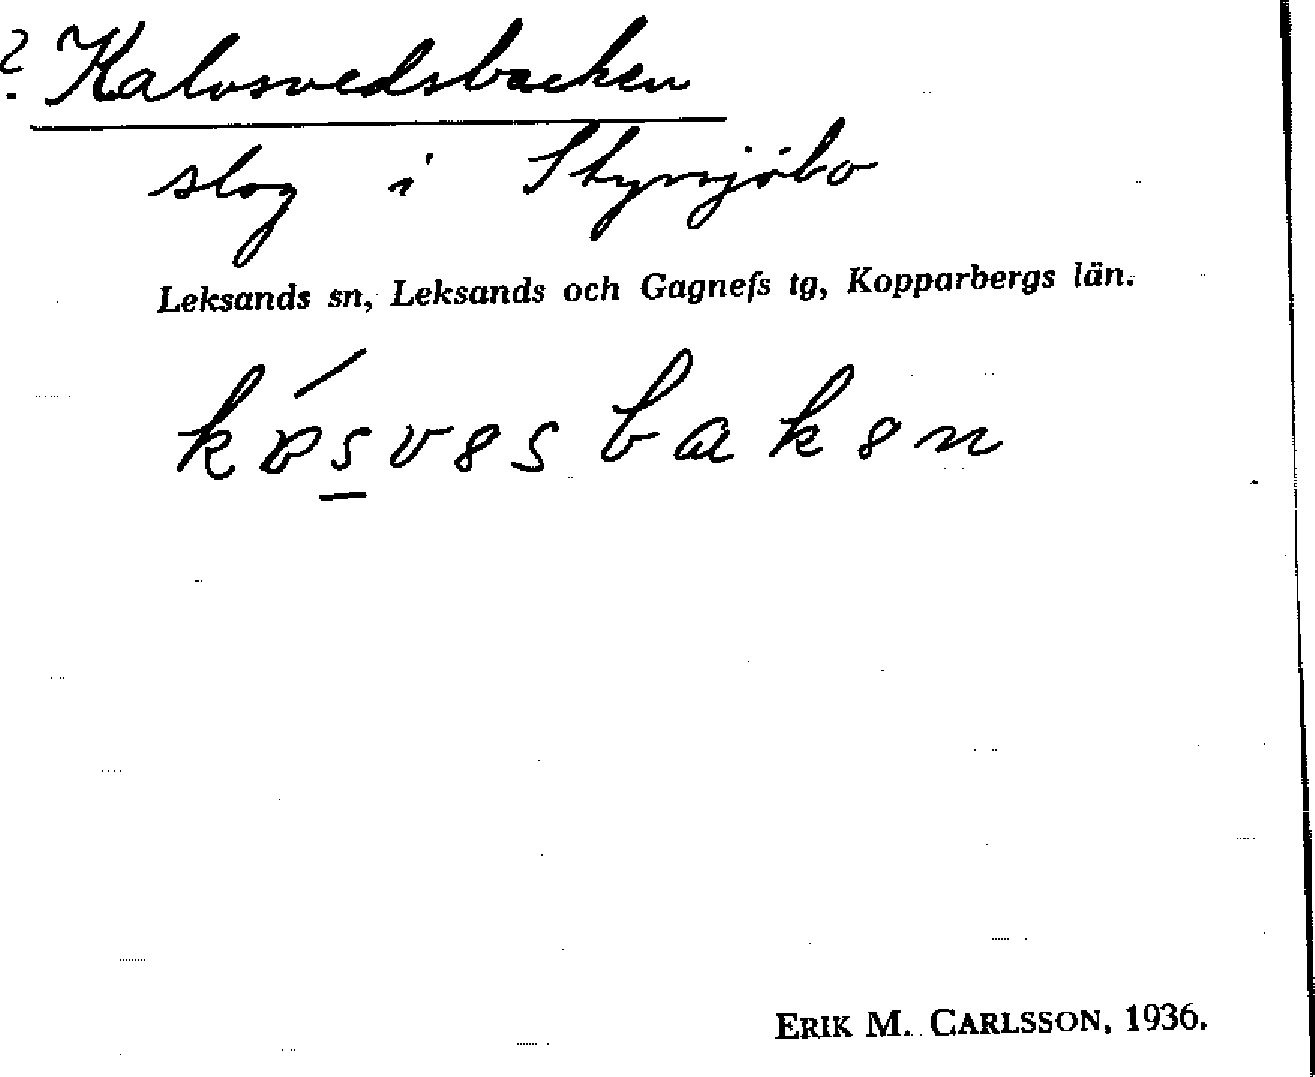 ? Kalvsvedsbacken
slog i Styrsjöbo
Leksands sn, Leksands och Gagnefs tg, Kopparbergs län.
ERIK M. CARLSSON, 1936.